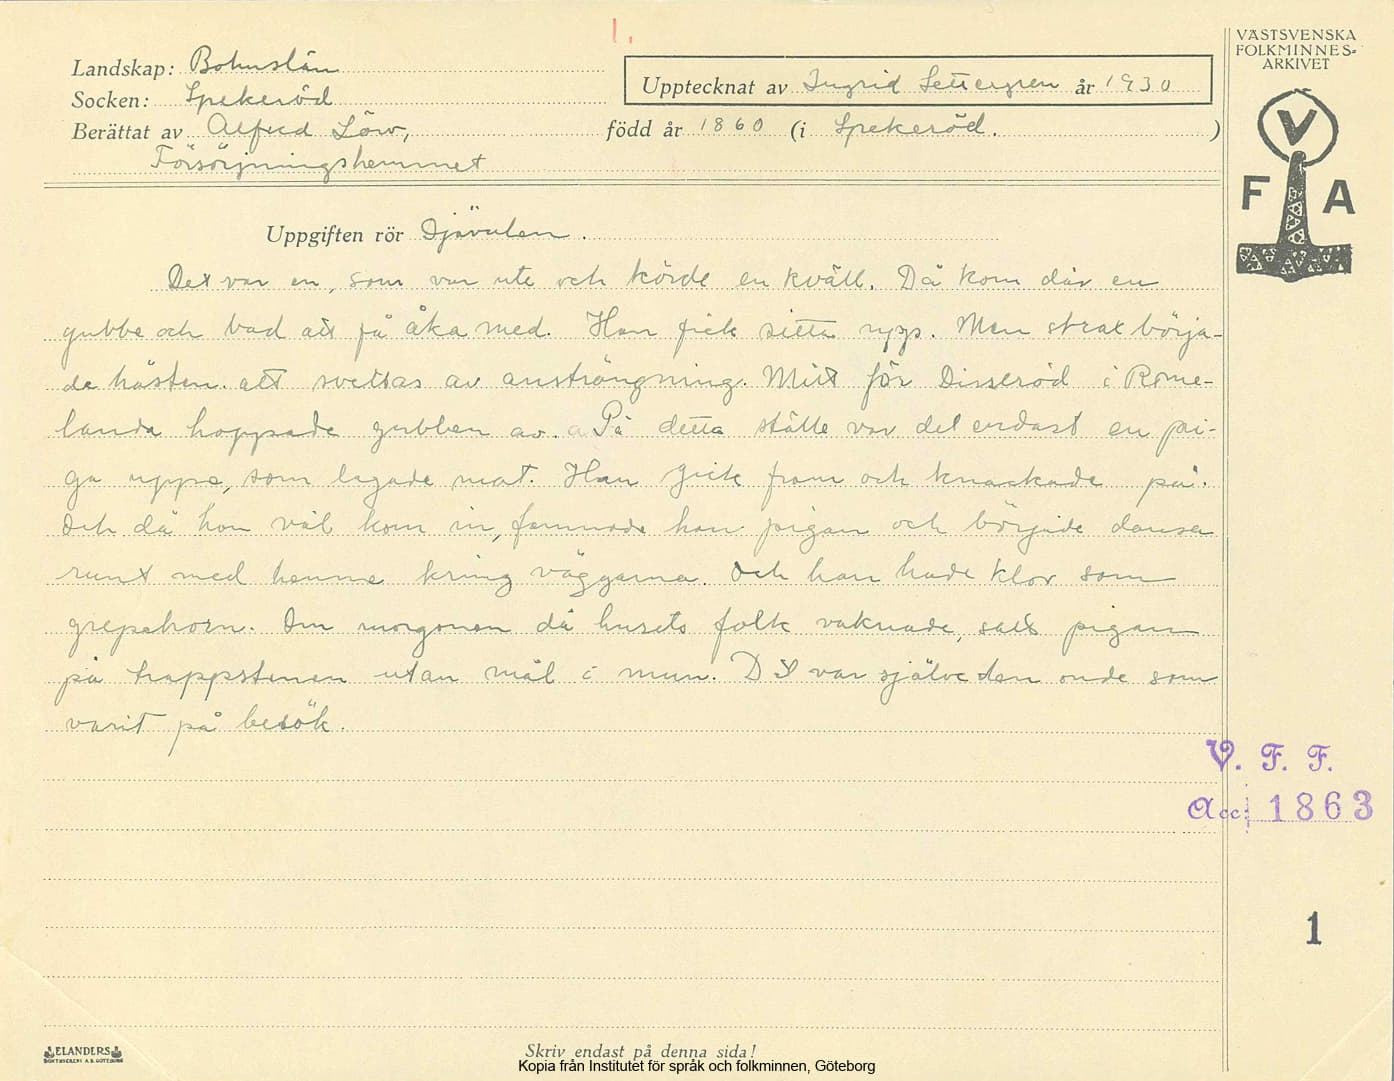 1.
Landskap: Bohuslän
Socken: Spekeröd
Upptecknat av Ingrid Settergren år 1930
Berättat av Alfred Löw, född år 1860 (i Spekeröd. )
Försörjningshemmet
Uppgiften rör Djävulen.
Det var en, som var ute och körde en kväll. Då kom där en
gubbe och bad att få åka med. Han fick sitta upp. Men strax börja-
de hästen att svettas av ansträngning. Mitt för Disseröd i Rome-
landa hoppade gubben av. På detta ställe var det endast en pi-
ga uppe, som lagade mat. Han gick fram och knackade på.
Och då han väl kom in, famnade han pigan och började dansa
runt med henne kring väggarna. Och han hade klor som
grepehorn. Om morgonen då husets folk vaknade, satt pigan
på trappstenen utan mål i mun. Det var själve den onde som
varit på besök.
VÄSTSVENSKA
FOLKMINNES-
ARKIVET
V
F A
V. F. F.
Acc: 1863
1
ELANDERS
BOKTRYCKERI A.B. GÖTEBORG
Skriv endast på denna sida!
Kopia från Institutet för språk och folkminnen, Göteborg